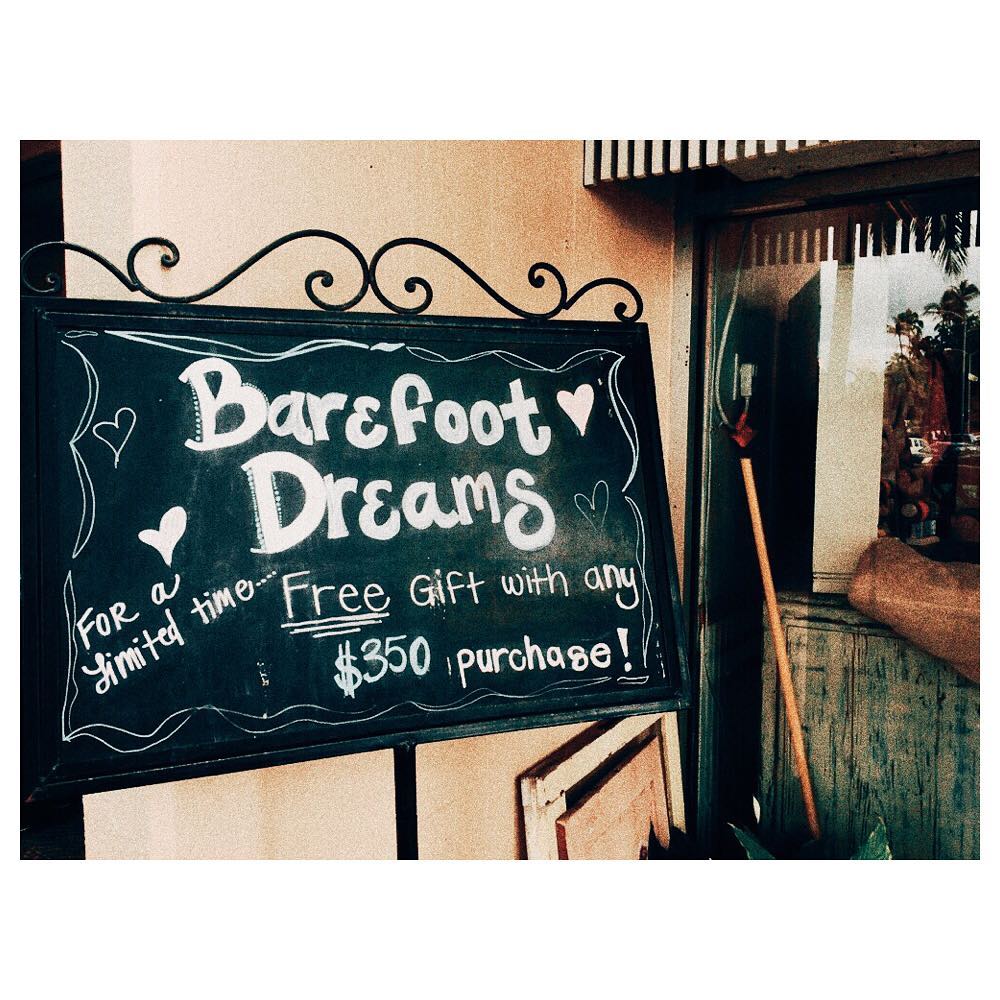 Barefoot
Dreams
For a
Limited time.... Free Gift with any
$350 purchase!